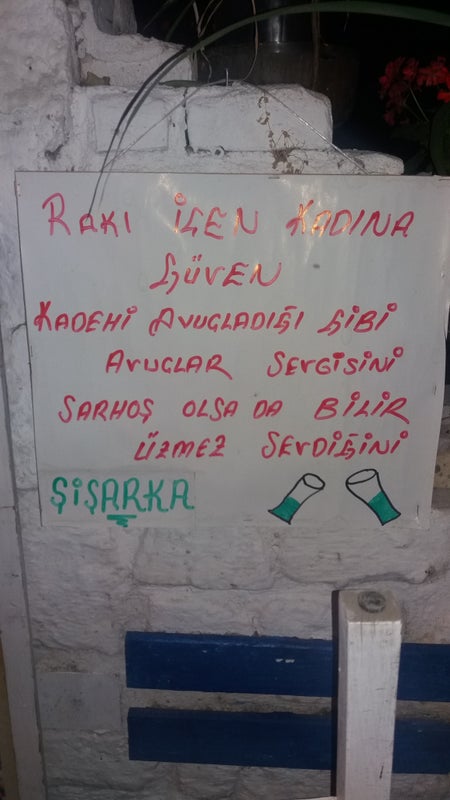 RAKI İÇEN KADINA
GÜVEN
KADEHİ AVUÇLADIĞI GİBİ
AVUÇLAR SEVGİSİNİ
SARHOŞ OLSA DA BİLİR
ÜZMEZ SEVDİĞİNİ
ŞİŞARKA